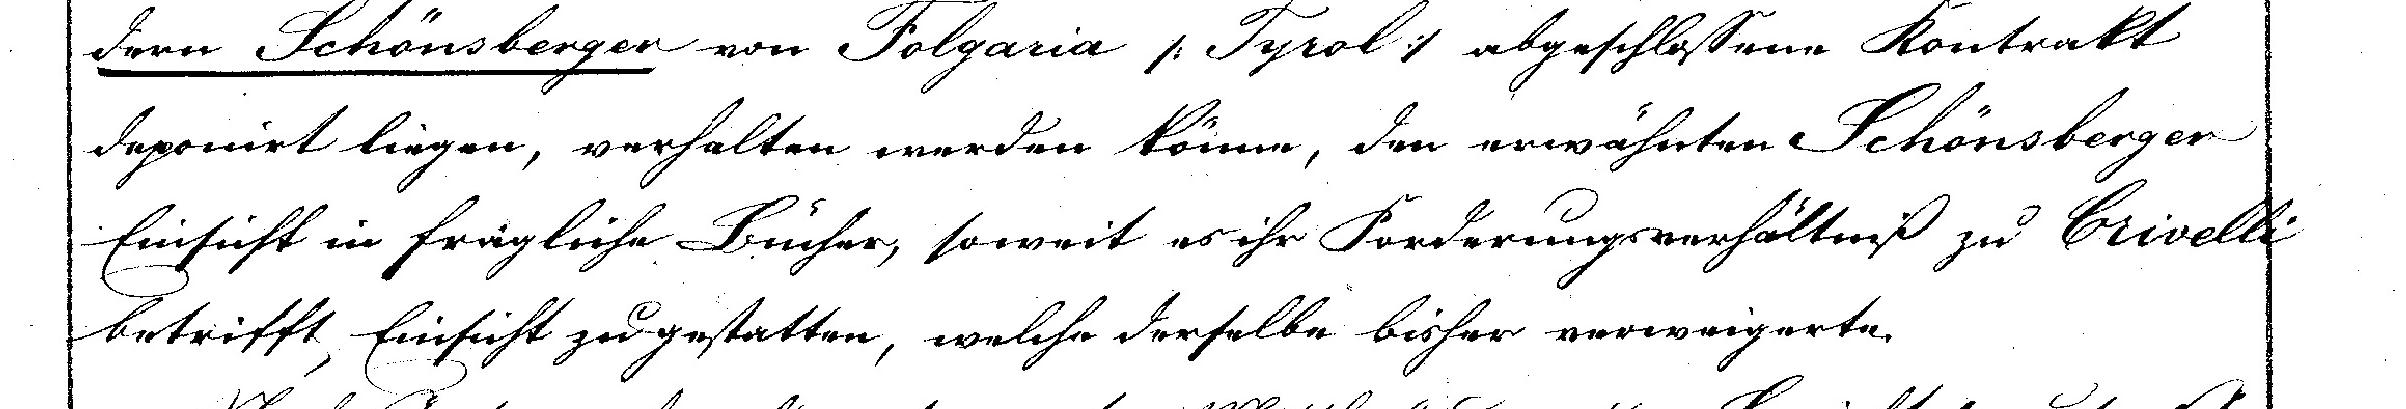 dern Schönsberger von Folgaria /: Tyrol :/ abgeschlossene Kontrakt
deponirt liegen, verhalten werden könne, den erwähnten Schönsberger
Einsicht in fragliche Bücher, soweit es ihr Forderungsverhältniß zu Crivelli
betrifft, Einsicht zu gestatten, welche derselbe bisher verweigerte.